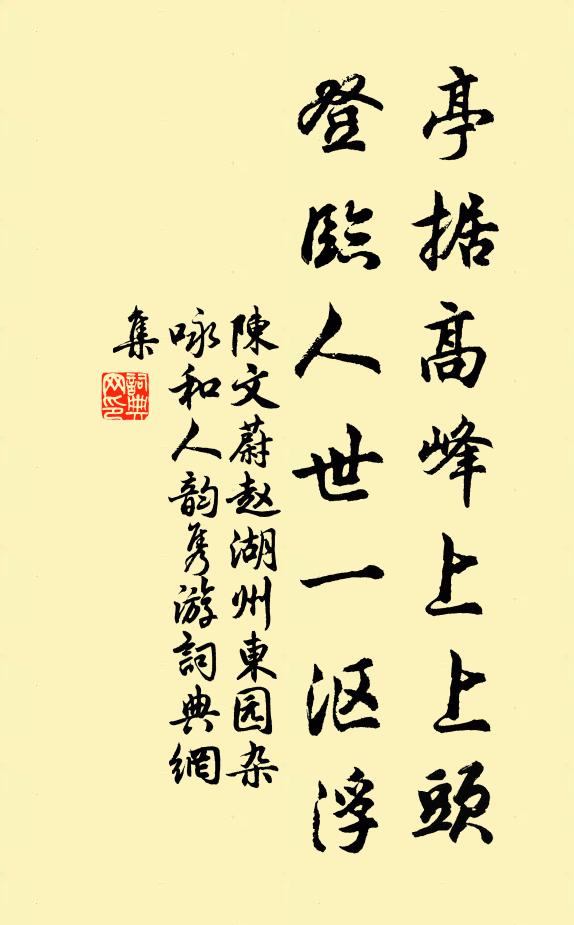 亭据高峰上上頭
登臨人世一沤浮
陳文蔚赵湖州東园杂
咏和人韵隽游詞典網
集
詞典网印